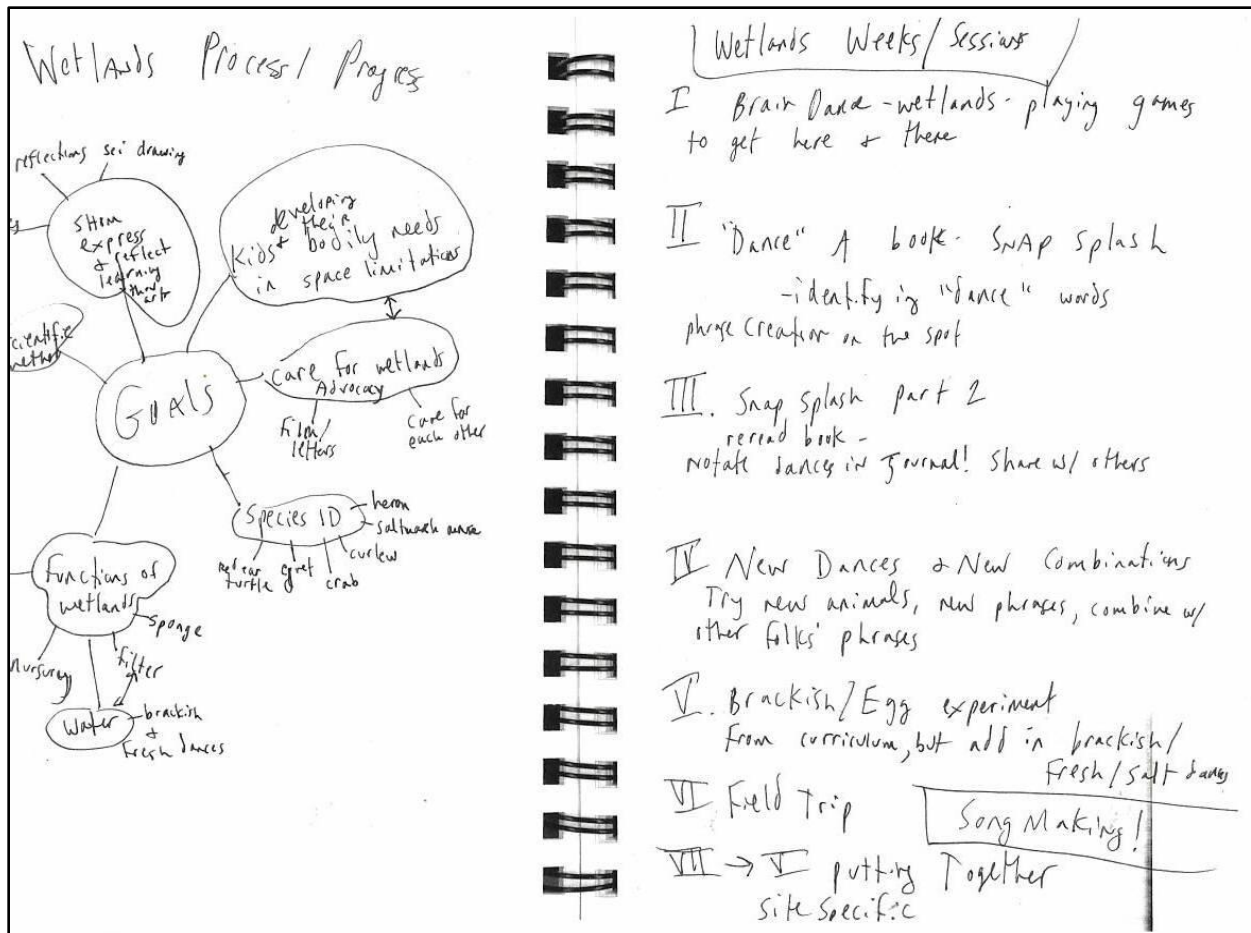 Wetlands Process/Progress
reflections sci drawing
SHOM
express
& reflect
learning
thru
arts
developing
their
Kids & bodily needs
in space limitations
cientific
method
GOALS
care for wetlands
Advocacy
Film/
letters
care for
each other
Species ID
heron
saltmarsh mouse
curlew
crab
egret
red ear
turtle
Functions of
wetlands
sponge
filter
nursuray
water
brackish
&
fresh dances
Wetlands Weeks/Sessions
I Brain Dance - wetlands - playing games
to get here & there
II "Dance" A book - SNAP Splash
- identifying "dance" words
phrase creation on the spot
III. Snap Splash part 2
reread book -
Notate dances in Journal! Share w/ others
IV New Dances & New Combinations
Try new animals, new phrases, combine w/
other folks' phrases
V. Brackish/Egg experiment
from curriculum, but add in brackish/
Fresh/Salt dances
VI Field Trip
Song Making!
VII → V putting Together
site specific